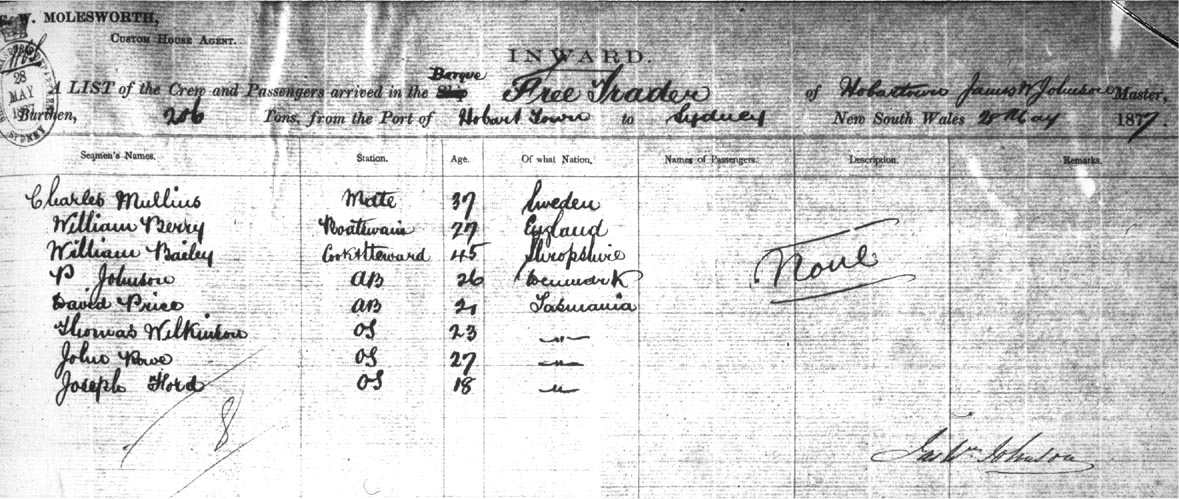 W. MOLESWORTH,
CUSTOM HOUSE AGENT.
28
MAY
SYDNEY
INWARD.
A LIST of the Crew and Passengers arrived in the Ship Barque Free Trader of Hobartown James W Johnson Master,
Burthen, 206 Tons, from the Port of Hobart Town to Sydney New South Wales 28 May 1877.
Seamen's Names. Station. Age. Of what Nation, Names of Passengers. Description. Remarks.
Charles Mullins Mate 37 Sweden
William Berry Boatswain 27 England
William Bailey Cook & Steward 45 Shropshire
P Johnson AB 26 Denmark
David Price AB 21 Tasmania
Thomas Wilkinson OS 23 "
John Rowe OS 27 "
Joseph Ford OS 18 "
None
8
Jas Wm Johnson